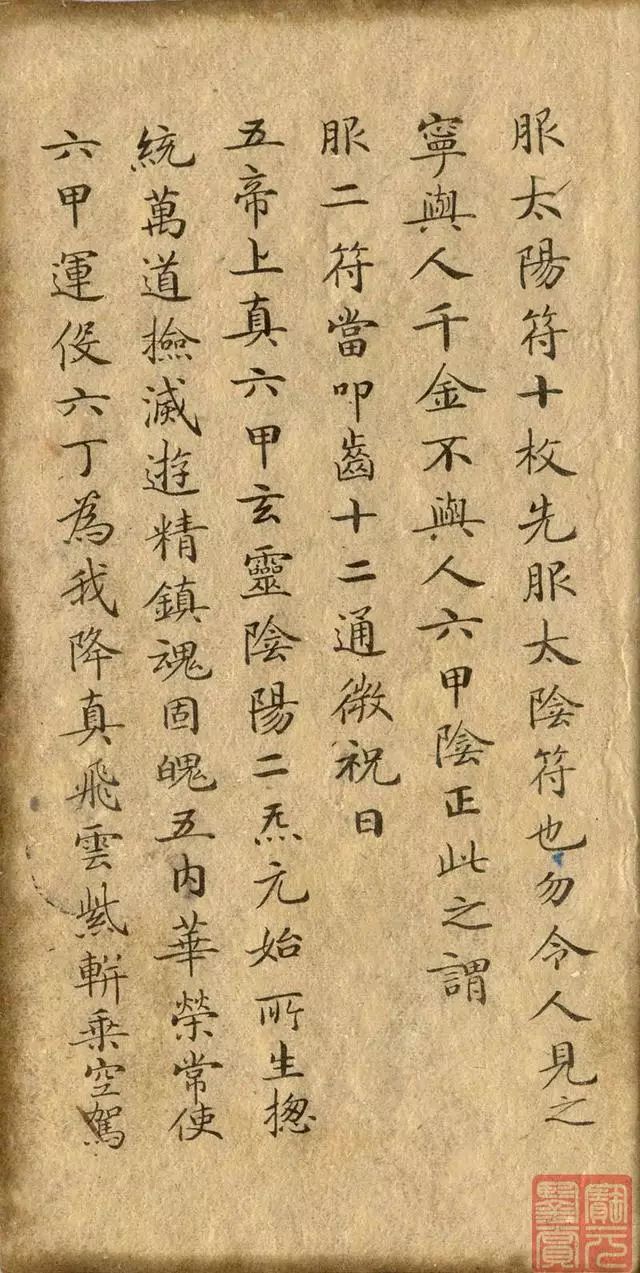 服太陽符十枚先服太陰符也勿令人見之
寧與人千金不與人六甲陰正此之謂
服二符當叩齒十二通微祝曰
五帝上真六甲玄靈陰陽二炁元始所生揔
統萬道撿滅遊精鎮魂固魄五内華榮常使
六甲運役六丁為我降真飛雲紫軿乘空駕